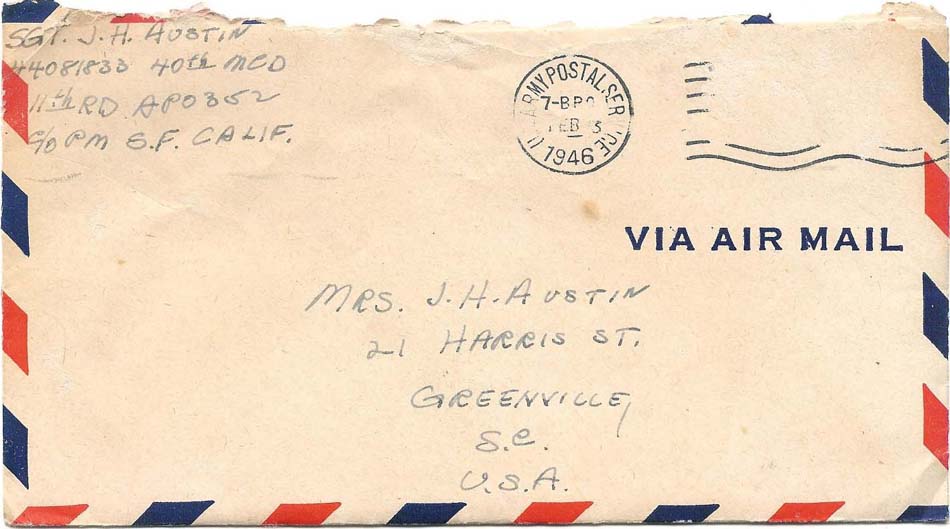 SGT. J. H. AUSTIN
44081833 40th MCD
11th RD APO 352
C/O PM S.F. CALIF.
ARMY POSTAL SERVICE
FEB
1946
VIA AIR MAIL
MRS. J. H. AUSTIN
21 HARRIS ST.
GREENVILLE,
S.C.
U.S.A.